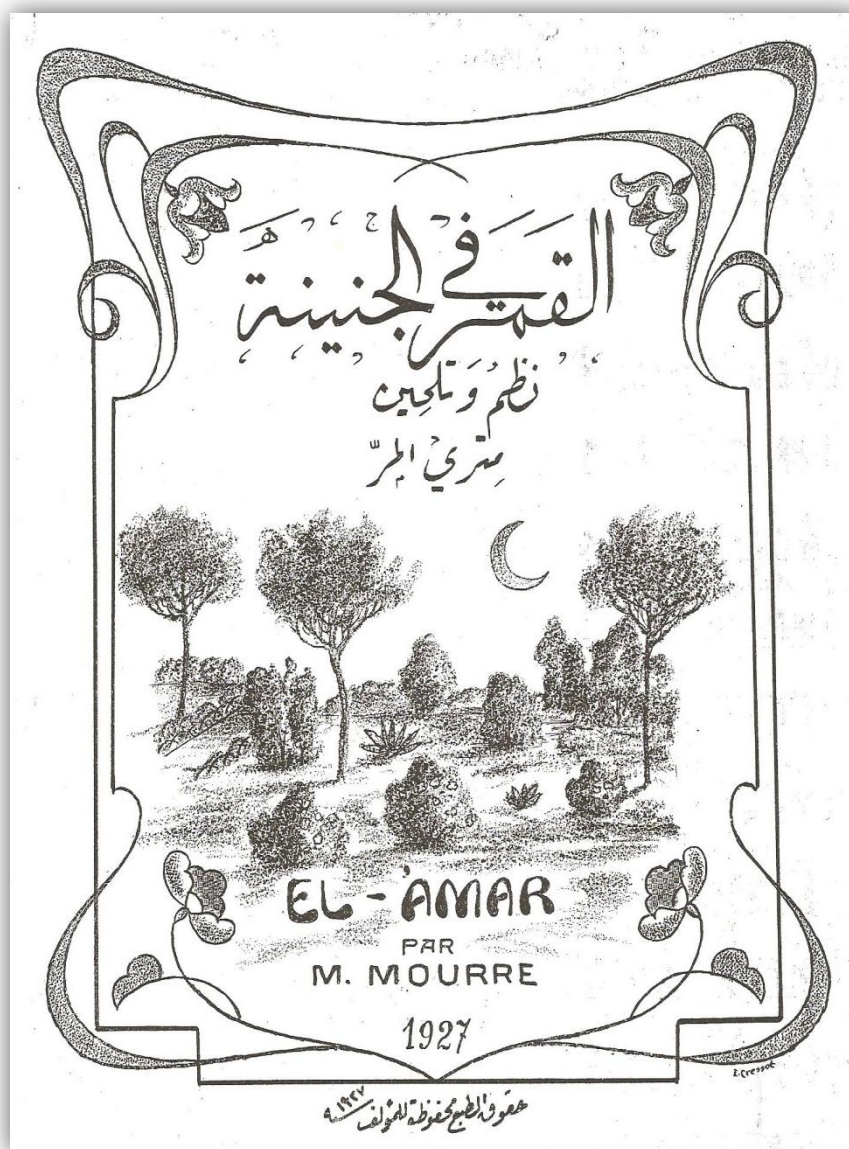 القمر في الجنينة
نظم وتلحين
متري المرّ
EL-'AMAR
PAR
M. MOURRE
1927
L. Cressot
حقوق الطبع محفوظة للمؤلف سنة ١٩٢٧